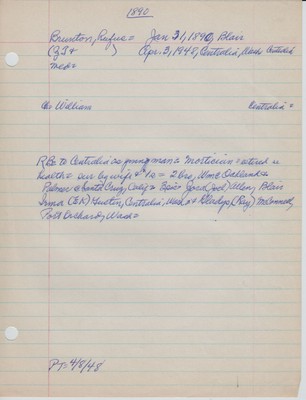 1890
Brunton, Rufus = Jan 31, 1890, Blair
(Z J & ) Apr. 3, 1948, Centralia, Wash Centralia
Med =
Ch: William Centralia =
RBe to Centralia as young man = Mortician = retired =
health = sur by wife & 1 = 2 bro, Wm & Oakland =
Palmer = Santa Cruz, Calif = Sis: Zora (Joe) Allen, Blair
Irma (E K) Gustin, Centralia, Wash = Gladys, (Roy) McConnell,
Port Orchard, Wash =
4/8/48